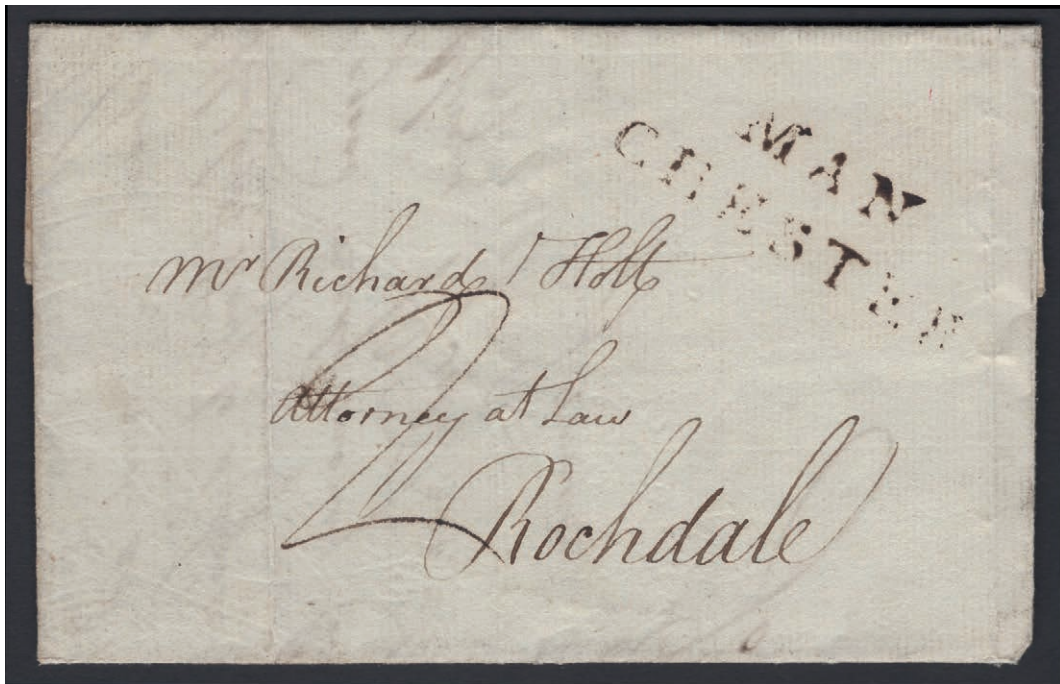 MAN
CHESTER
Mr Richard Holt
2
Attorney at Law
Rochdale